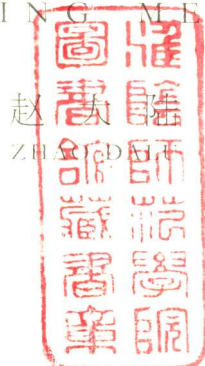 ING ME
赵大陆
ZHAO DALU
淮陰師范學院
圖書館藏書章